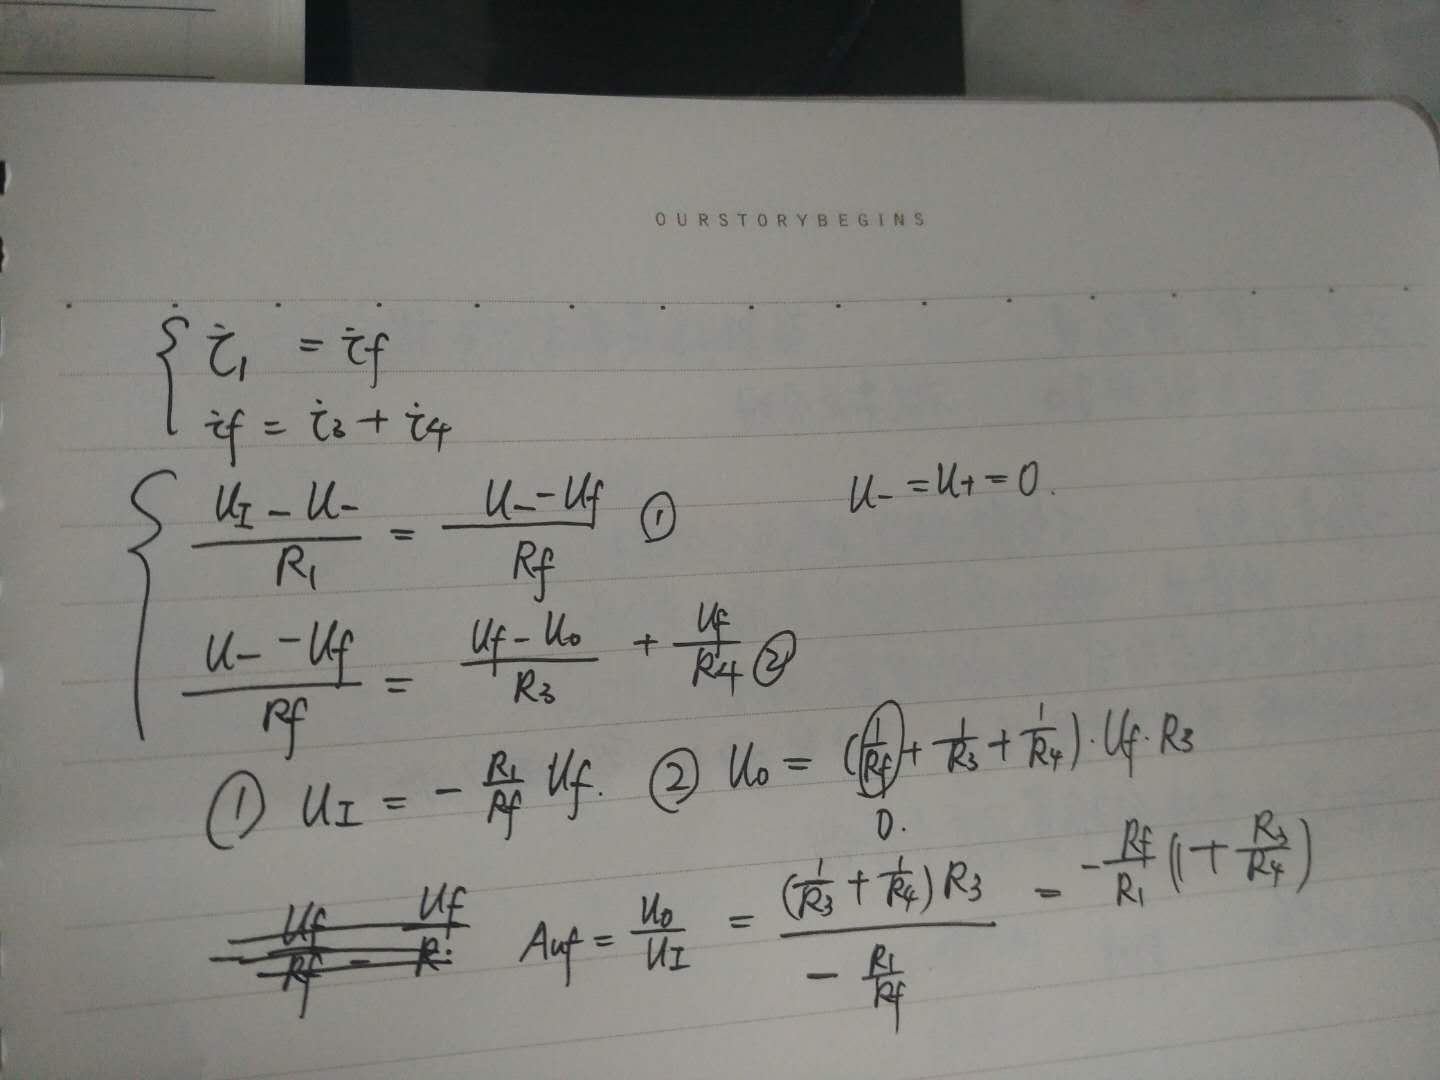 OURSTORYBEGINS
{ i₁ = if
if = i₃ + i₄
{ (U_I - U₋)/R₁ = (U₋ - Uf)/Rf ① U₋ = U₊ = 0.
(U₋ - Uf)/Rf = (Uf - U₀)/R₃ + Uf/R₄ ②
① U_I = - R₁/Rf Uf. ② U₀ = (1/Rf + 1/R₃ + 1/R₄)·Uf·R₃
0.
Auf = U₀/U_I = (1/R₃ + 1/R₄)R₃ / (- R₁/Rf) = - Rf/R₁ (1 + R₃/R₄)